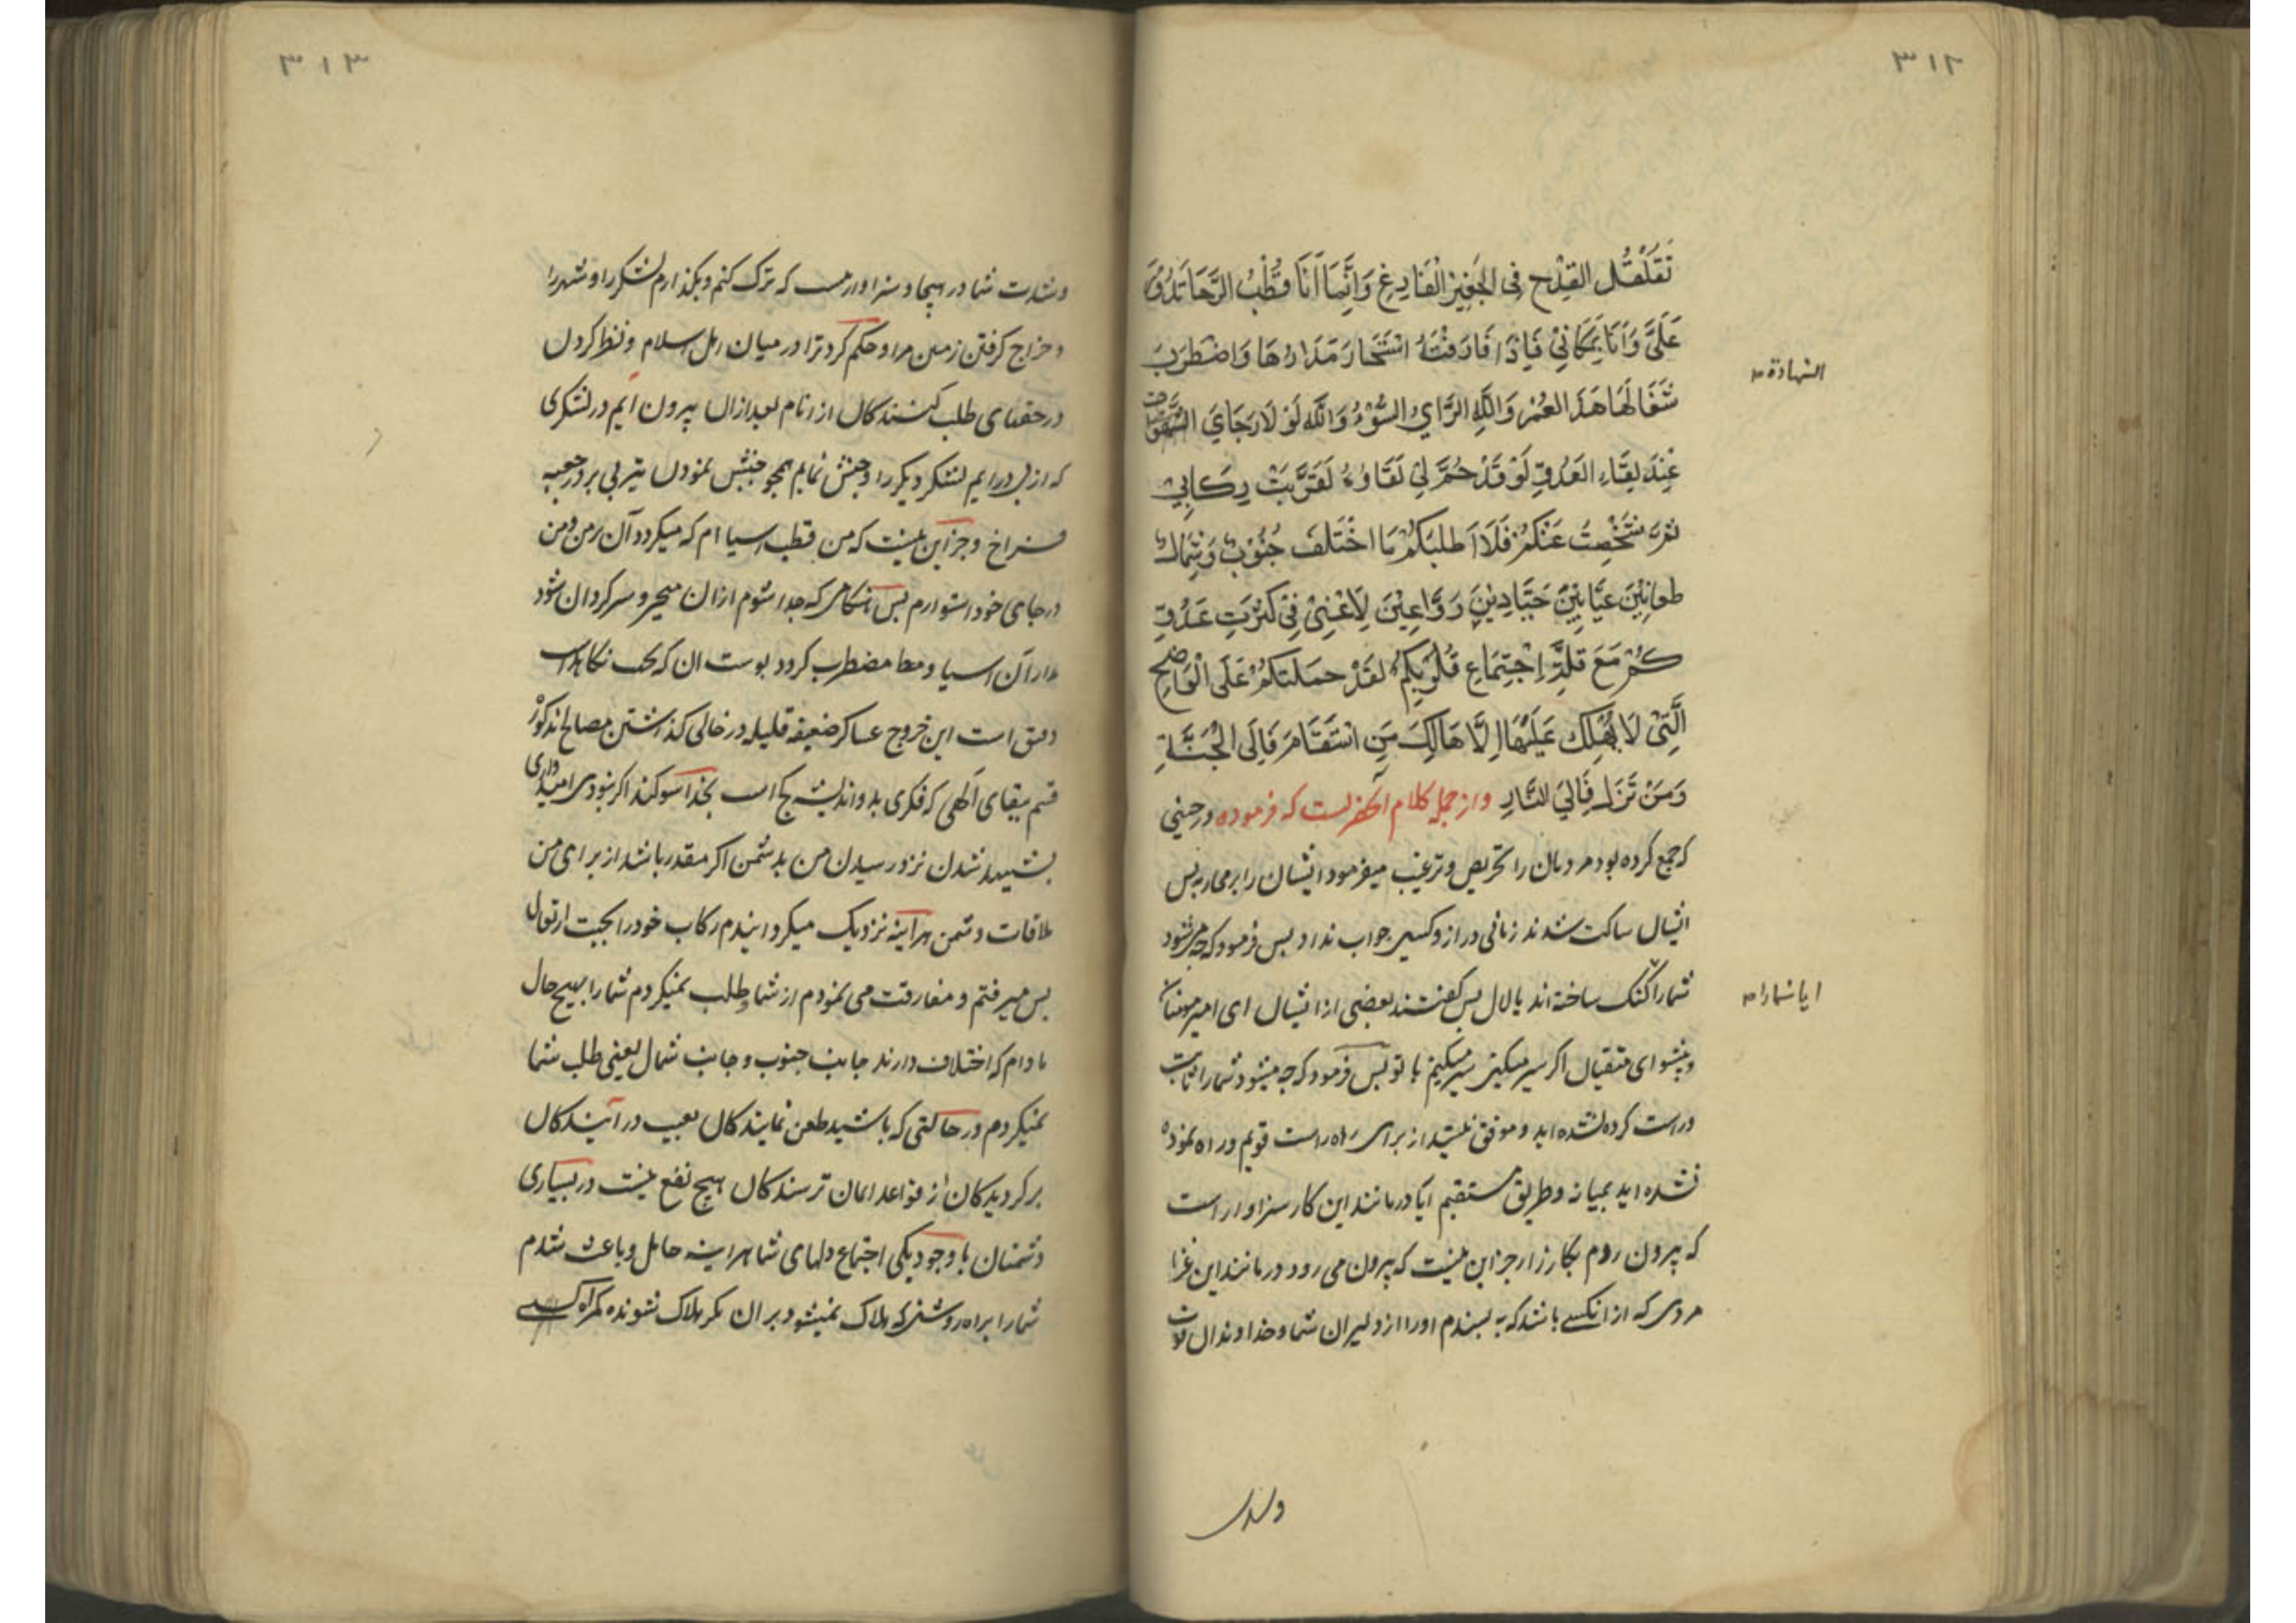 ٣١٢
تَقَلْقُلَ القِدْحِ فِی الجَفِیْرِ الْفَارِغِ وَاِنَّمَا اَنَا قُطْبُ الرَّحَا تَدُوْرُ
عَلَیَّ وَاَنَا بِمَکَانِیْ فَاِذَا فَارَقْتُهُ اسْتَحَارَ مَدَارُهَا وَاضْطَرَبَ
الشهادة
ثِفَالُهَا هَذَا لَعَمْرُ وَاللّٰهِ الرَّایُ السُّوْءُ وَاللّٰهِ لَوْ لَا رَجَایَ
عِنْدَ لِقَاءِ العَدُوِّ لَوْ قَدْ حُمَّ لِیْ لِقَاؤُهُ لَقَرَّبَتُ رِکَابِیْ
ثُمَّ شَخَصْتُ عَنْکُمْ فَلَا اَطْلُبُکُمْ مَا اخْتَلَفَ جُنُوْبٌ وَشِمَالٌ
طعانِیْنَ عَیَّابِیْنَ حَیَّادِیْنَ رَوَّاعِیْنَ لَاغْنِیْ فِیْ کَثْرَتِ عَدُوِّ
کُمْ مَعَ قِلَّةِ اِجْتِمَاعِ قُلُوْبِکُمْ لَقَدْ حَمَلْتُکُمْ عَلَی الْوَاضِحِ
الَّتِیْ لَا یُهْلِكُ عَلَیْهَا اِلَّا هَالِكَ مَنِ اسْتَقَامَ فَاِلَی الْجَنَّةِ
وَمَنْ تَزَلَّ فَاِلَی النَّارِ واز جمله کلام آنحضرتست که فرموده در حینی
که جمع کرده بود مردمان را تحریص و ترغیب میفرمود ایشان را بر محاربه پس
ایشان ساکت شدند زمانی دراز و کسی جواب نداد پس فرمود که چه میشود
ایا شما را
شما را کنک ساخته اند یا لال پس کفتند بعضی از ایشان ای امیر مومنان
و پیشوای متقیان اکر سیر میکنی سیر میکنیم با تو پس فرمود که چه میشود شما را ثابت
و راست کرده نشده اید و موفق نیستید از برای راه راست قویم و راه نموده
نشده اید بمیانه و طریق مستقیم ایا در مانند این کار سزاوار است
که بیرون روم بکارزار جز این نیست که بیرون می رود در مانند این غزا
مردی که از انکسی باشد که به پسندم او را از دلیران شما و خداوندان
وشدت
٣١٣
وشدت شما در هیجا و سزاوار نیست که ترک کنم و بکذارم لشکر را و شهر را
و خراج کرفتن زمین را و حکم کردنرا در میان اهل اسلام و نظر کردن
در حقهای طلب کنندکان از انام بعد ازان بیرون ایم در لشکری
که از پی در ایم لشکر دیکر را و جنبش نمایم همچو جنبش نمودن تیر بی پر در جعبه
فراخ و جز این نیست که من قطب اسیا ام که میکردد آن بر من و من
در جای خود استوارم پس انکاهی که جدا شوم ازان متحیر و سرکردان شود
مدار آن اسیا و مضطرب کردد پوست ان که
است این خروج عساکر ضعیفه قلیله در خالی کذاشتن مصالح مذکوره
قسم ببقای آلهی که فکری بد و اندیشه کج است بخدا سوکند اکر نبودی امیدواری
بشهید شدن نزد رسیدن من بدشمن اکر مقدر باشد از برای من
ملاقات دشمن هراینه نزدیک میکردانیدم رکاب خود را بجهت ارتحال
پس میرفتم و مفارقت می نمودم از شما و طلب نمیکردم شما را بهیچ حال
مادام که اختلاف دارند جانب جنوب و جانب شمال یعنی طلب شما
نمیکردم در حالتی که باشید طعن نمایندکان بعیب در آیندکان
برکردیدکان از قواعد ایمان ترسندکان هیچ نفع نیست در بسیاری
دشمنان با وجود یکی اجتماع دلهای شما هراینه حامل و باعث شدم
شما را براه روشنی که هلاک نمیشود بر ان مکر هلاک شونده کمراه کسی